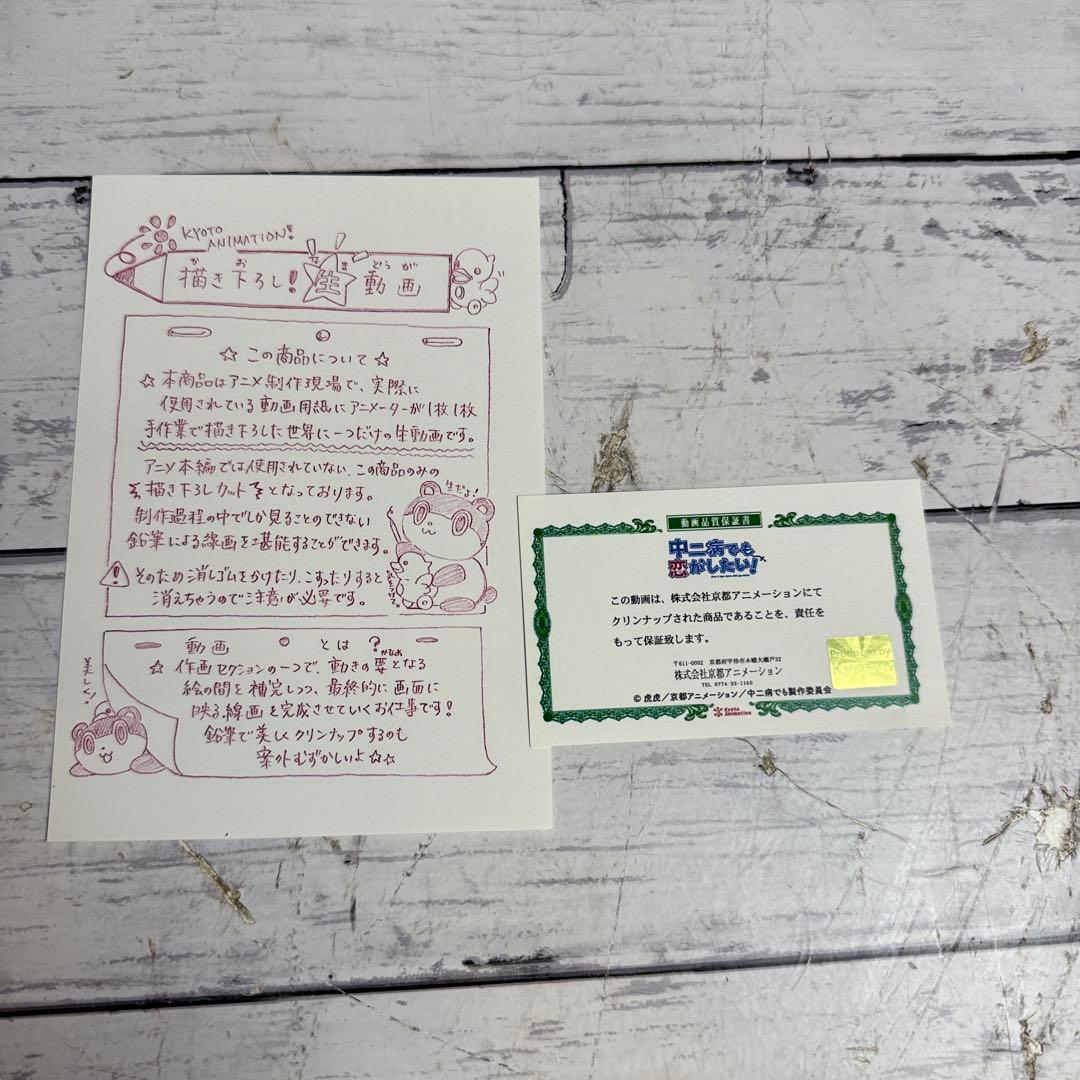 KYOTO
ANIMATION!
描き下ろし!生動画
か お なま どうが
☆ この商品について ☆
☆ 本商品はアニメ制作現場で、実際に
使用されている動画用紙にアニメーターが1枚1枚
手作業で描き下ろした世界に一つだけの生動画です。
アニメ本編では使用されていない、この商品のみの
描き下ろしカットとなっております。
制作過程の中でしか見ることのできない
鉛筆による線画を堪能することができます。
生だよ!
そのため消しゴムをかけたり、こすったりすると
消えちゃうので注意が必要です。
動画とは?
かなめ
☆ 作画セクションの一つで、動きの要となる
絵の間を補完しつつ、最終的に画面に
映る線画を完成させていくお仕事です!
鉛筆で美しくクリンナップするのも
案外むずかしいよ☆☆
美しく!
動画品質保証書
中二病でも
恋がしたい!
この動画は、株式会社京都アニメーションにて
クリンナップされた商品であることを、責任を
もって保証致します。
〒611-0002 京都府宇治市木幡大瀬戸32
株式会社京都アニメーション
TEL 0774-33-1140
© 虎虎/京都アニメーション/中二病でも製作委員会
Kyoto
Animation
Produced by